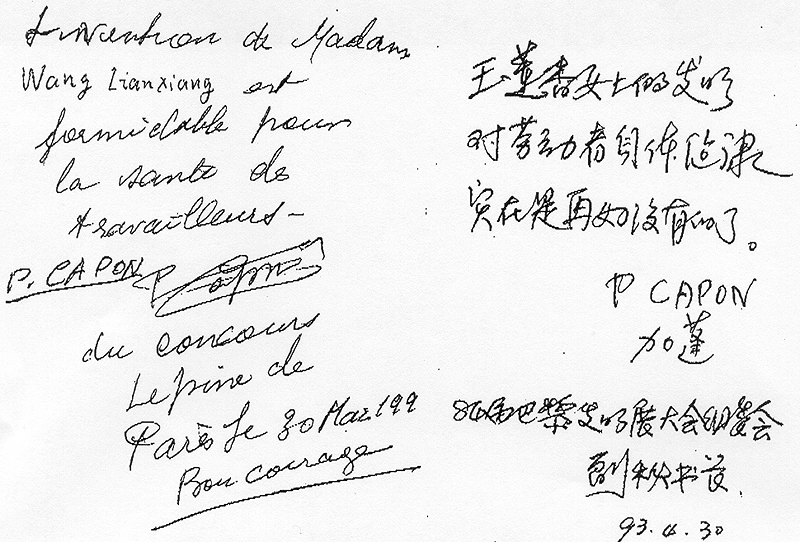 L'invention de Madame
Wang Lianxiang est
formidable pour
la santé de
travailleurs-
P. CAPON
du concours
Lepine de
Paris le 30 Mai 199
Bon courage
王莲香女士的发明
对劳动者身体健康
实在是再好没有的了。
P CAPON
加蓬
84届巴黎发明展大会组委会
副秘书长
93.4.30